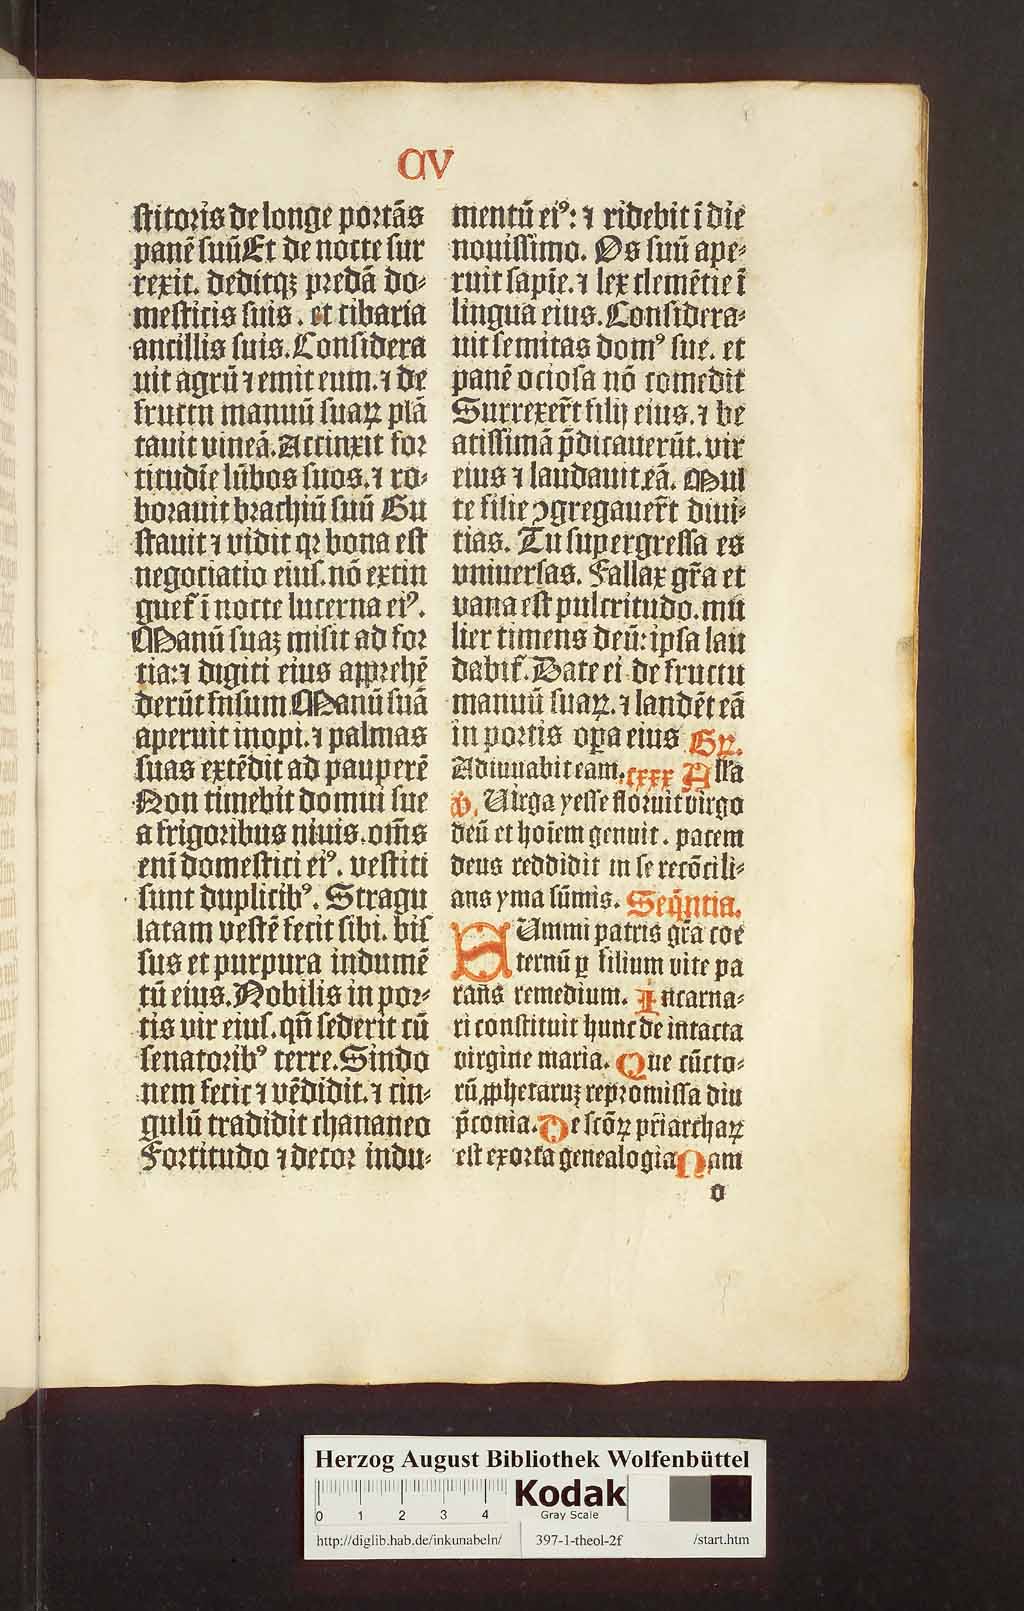 CV
stitoris de longe portās
panē suū Et de nocte sur
rexit. deditqꝫ predā do⸗
mesticis suis. et cibaria
ancillis suis. Considera
uit agrū ⁊ emit eum. ⁊ de
fructu manuū suaꝝ plā
tauit vineā. Accinxit for
titudīe lūbos suos. ⁊ ro⸗
borauit brachiū suū Gu
stauit ⁊ vidit qꝛ bona est
negociatio eius. nō extin
guet᷑ ī nocte lucerna eiꝰ.
Manū suaꝫ misit ad for
tia: ⁊ digiti eius apprehē
derūt fusum Manū suā
aperuit inopi. ⁊ palmas
suas extēdit ad pauperē
Non timebit domui sue
a frigoribus niuis. oēs
enī domestici eiꝰ. vestiti
sunt duplicibꝰ. Stragu
latam vestē fecit sibi. bis
sus et purpura indumē
tū eius. Nobilis in por⸗
tis vir eius. qn̄ sederit cū
senatoribꝰ terre. Sindo
nem fecit ⁊ vēdidit. ⁊ cin⸗
gulū tradidit chananeo
Fortitudo ⁊ decor indu⸗
mentū eiꝰ: ⁊ ridebit ī die
nouissimo. Os suū ape⸗
ruit sapīe. ⁊ lex clemētie ī
lingua eius. Considera⸗
uit semitas domꝰ sue. et
panē ociosa nō comedit
Surrexer̄t filij eius. ⁊ be
atissimā p̄dicauerūt. vir
eius ⁊ laudauit eā. Mul
te filie ꝯgregauer̄t diui⸗
tias. Tu supergressa es
vniuersas. Fallax gr̄a et
vana est pulcritudo. mu
lier timens deū: ipsa lau
dabit᷑. Date ei de fructu
manuū suaꝝ. ⁊ laudēt eā
in portis oꝑa eius Gꝝ.
Adiuuabit eam. cxxx Alla
℣. Uirga yesse floruit virgo
deū et hoīem genuit. pacem
deus reddidit in se recōcili⸗
ans yma sūmis. Seq̄ntia.
SUmmi patris gr̄a coe
ternū ꝑ filium vite pa
rans remedium. Incarna⸗
ri constituit hunc de intacta
virgine maria. Que cūcto⸗
rū ꝓphetaruꝫ repromissa diu
p̄conia. De scōꝝ pr̄iarchaꝝ
est exorta genealogia Nam
o
Herzog August Bibliothek Wolfenbüttel
0 1 2 3 4
Kodak
Gray Scale
http://diglib.hab.de/inkunabeln/ 397-1-theol-2f /start.htm